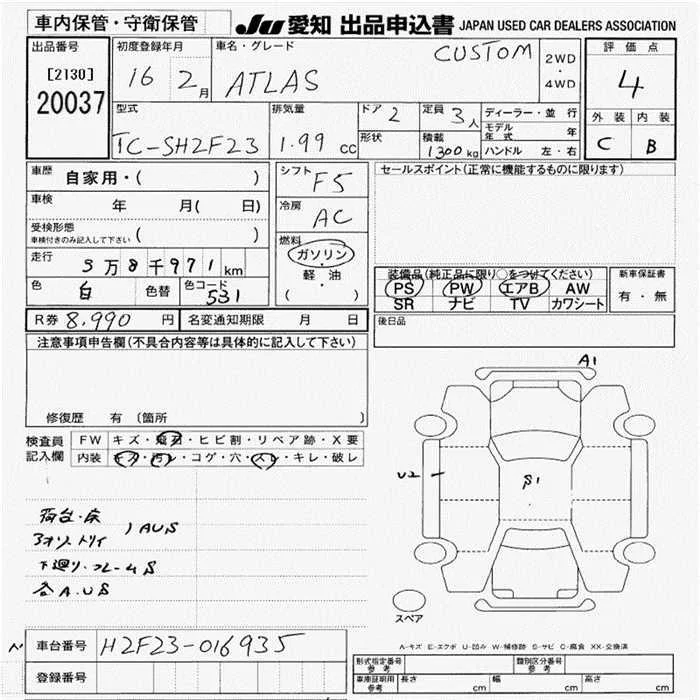 車内保管・守衛保管
JU 愛知 出品申込書 JAPAN USED CAR DEALERS ASSOCIATION
出品番号 初度登録年月 車名・グレード 評価点
[2130] 16 2月 ATLAS CUSTOM 2WD・4WD 4
20037
型式 排気量 ドア 2 定員 3人 ディーラー・並行 外装 内装
形状 積載 1300kg モデル年式 年
TC-SH2F23 1.99cc ハンドル 左・右 C B
車歴 自家用・( ) シフト F5 セールスポイント(正常に機能するものに限ります)
車検 年 月( 日) 冷房 AC
受検形態
車検付きのみ記入して下さい ( )
燃料
ガソリン・軽・油
( )
走行 5万8千971km
色 白 色替 色コード 531
装備品(純正品に限り○をつけてください) 新車保証書
PS PW エアB AW 有・無
SR ナビ TV カワシート
R券 8,990円 名変通知期限 月 日 後日品
注意事項申告欄(不具合内容等は具体的に記入して下さい)
修復歴 有 〔箇所 〕
A1
検査員記入欄 FW キズ・飛石・ヒビ割・リペア跡・X要
内装 キズ・汚レ・コゲ・穴・スレ・キレ・破レ
U2
S1
荷台・床
AUS
下廻り・フレームS
各A.US
スペア
A-キズ E-エクボ U-凹み W-補修跡 S-サビ C-腐食 XX-交換済
車台番号 H2F23-016935
登録番号
形式指定番号 参考 類別区分番号 参考
車庫証明用 参考 長さ cm 幅 cm 高さ cm